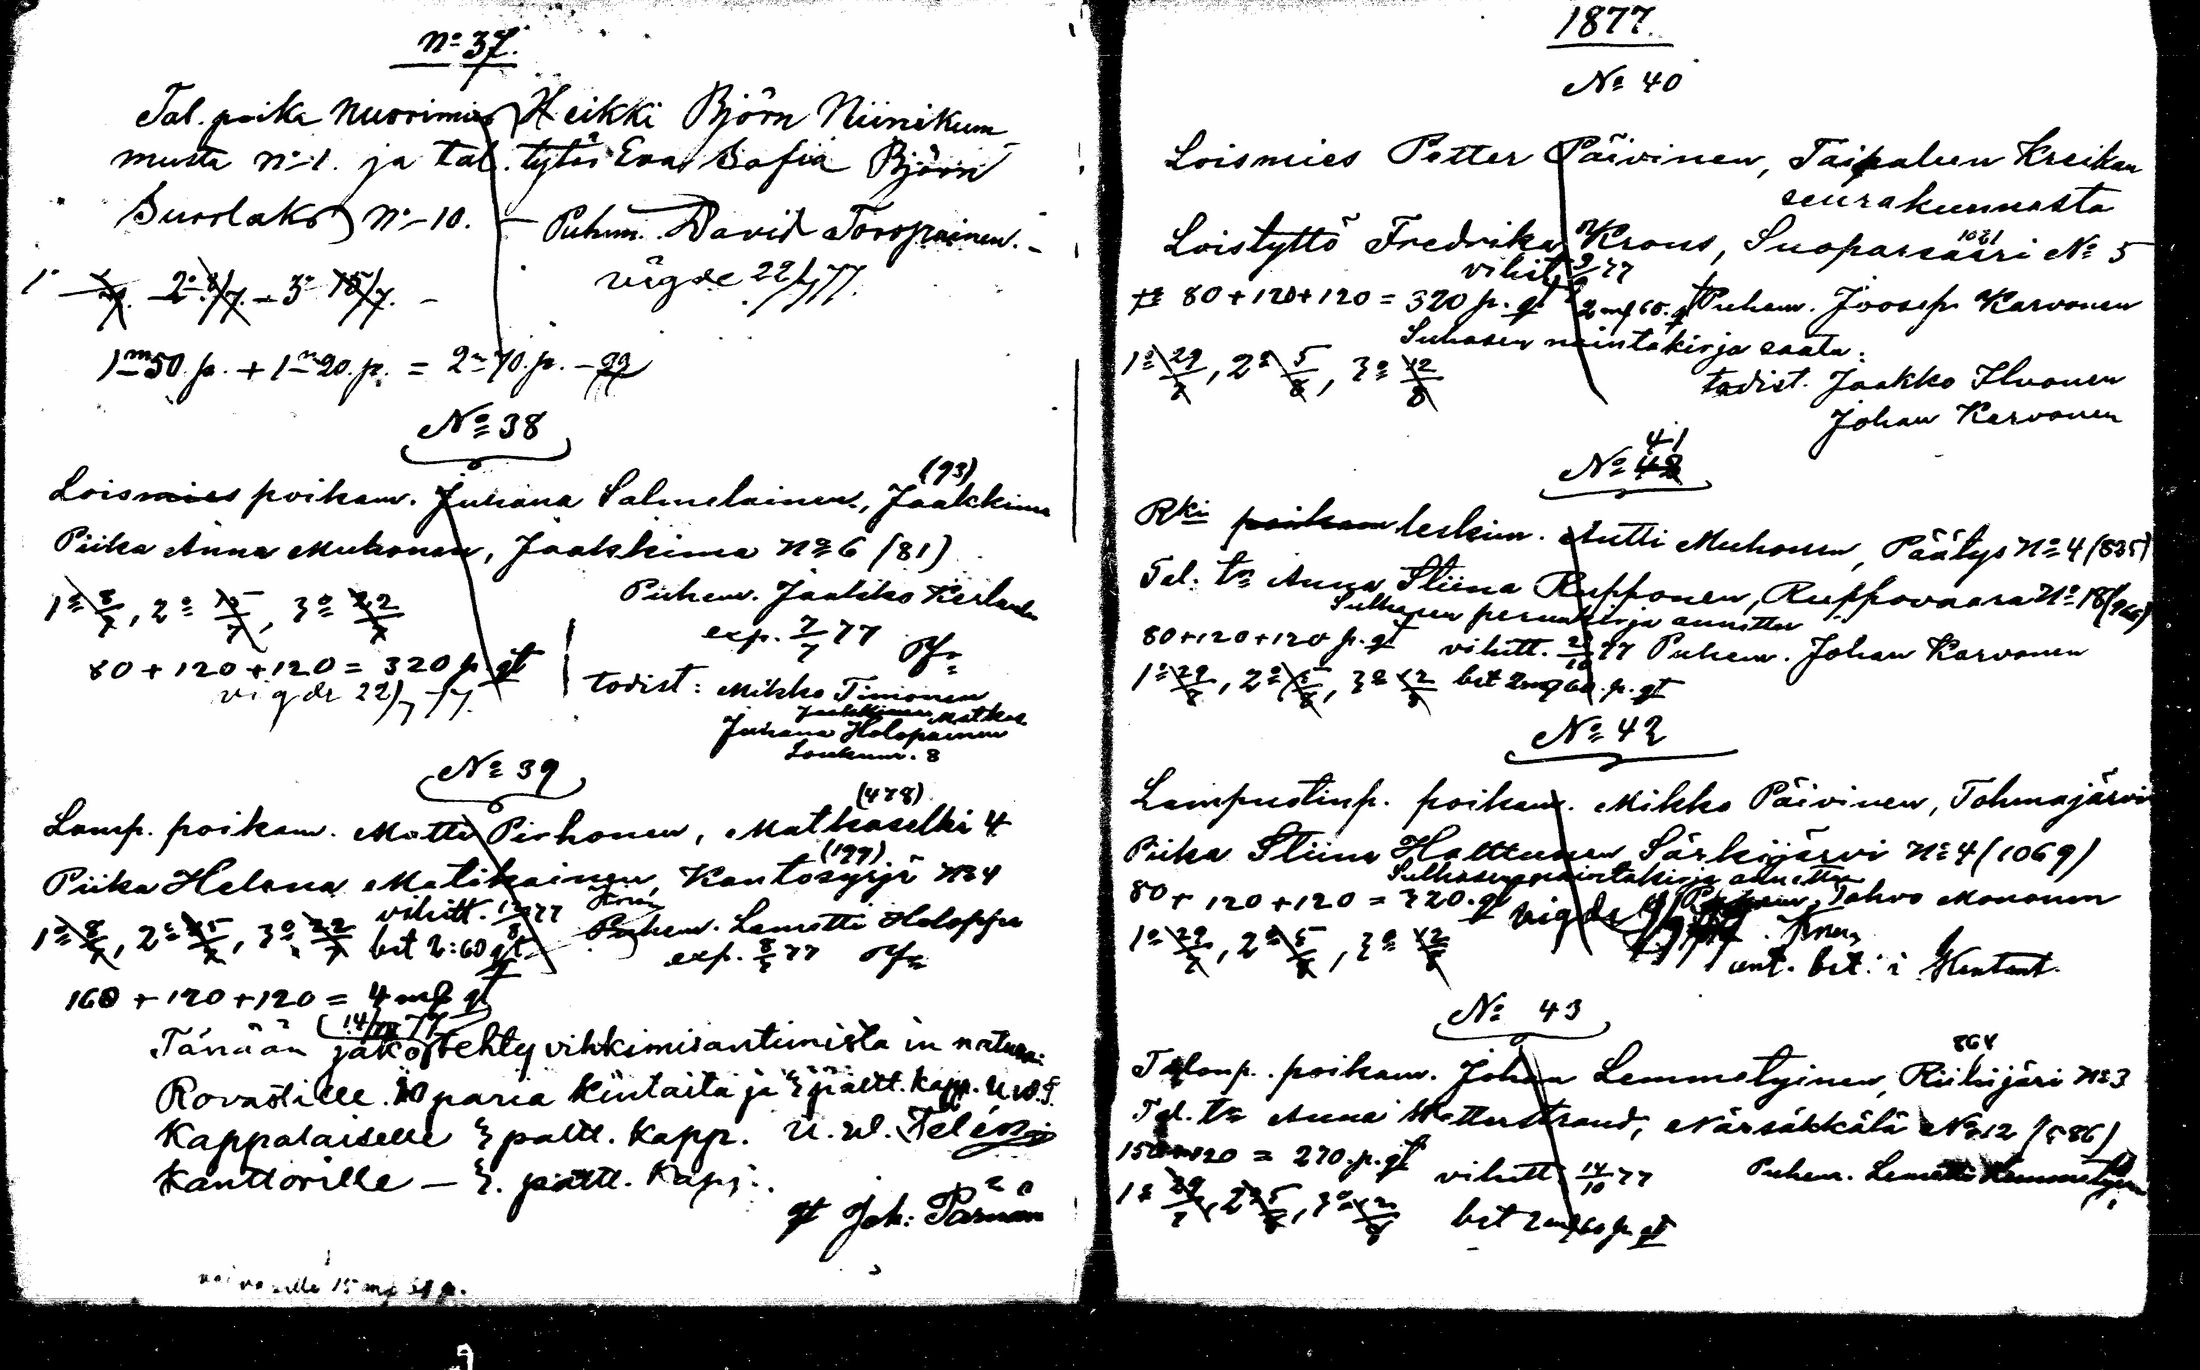 No 37.
Tal. poika nuorimies Heikki Björn Niinikum
musta No 1. ja tal. tytär Eva Sofia Björn
Suorlaks No 10. — Puhm. David Toropainen. —
vigde 22/7 77.
1o 2o 8/7. – 3o 15/7. –
1 m 50 p. + 1 m 20. p. = 2 m 70. p. –
No 38
(93)
Loismies poikam. Juhana Salmelainen, Jaakkima
Piika Anna Muhonen, Jaakkima No 6 (81)
1o 8/7, 2o 15/7, 3o 22/7
Puhem. Jaakko
exp. 7/7 77
80 + 120 + 120 = 320 p. qt
vigde 22/7 77.
todist: Mikko Timonen
Juhana Holopainen
8
No 39
(478)
Lamp. poikam. Matti Pirhonen, Matkaselkä 4
(199)
Piika Helena Matikainen, Kantosyrjä No 4
1o 8/7, 2o 15/7, 3o 22/7
vihitt. 77
bet 2:60 qt
Puhem. Lemetti Holoppa
exp. 8/7 77
160 + 120 + 120 = 4 mk qt
Tänään jako tehty vihkimisantimista in natura:
Rovastille 10 paria kintaita ja 3 paltt. kapp. u. w. f.
Kappalaiselle 3 paltt. kapp. u. w.
Kanttorille — 3. paltt. kapp.
qt Joh: Pärnän
15 mk p.
1877.
No 40
Loismies Petter Päivinen, Taipaleen Kreikan
seurakunnasta
Loistyttö Fredrika Krons, Suoparsaari No 5
1021
vihit. 77
80 + 120 + 120 = 320 p. qt 2 mk 60. qt Puhem. Joosep Karvonen
Sulhasen naintakirja saatu:
1o 29/7, 2o 5/8, 3o 12/8
todist. Jaakko Ihvonen
Johan Karvonen
41
No 42
Rki poikam leskim. Antti Muhonen, Päätys No 4 (835)
Tal. tr Anna Stiina Rupponen, Ruppovaara No 18
Sulhasen perunkirja annettu
80 + 120 + 120 p. qt vihitt. 77 Puhem. Johan Karvonen
1o 29/7, 2o 5/8, 3o 12/8 bet 2 mk 60. p. qt
No 42
Lampuotinp. poikam. Mikko Päivinen, Tohmajärvi
Piika Stiina Hatttunen Särkijärvi No 4 (1069)
Sulhasen naintakirja annettu
80 + 120 + 120 = 320. qt vigde Tahvo Mononen
1o 29/7, 2o 5/8, 3o 12/8
ant. bet. i Kontant.
No 43
864
Talonp. poikam. Johan Lemmetyinen, Riihijäri No 3
Tal. tr Anna Wetterstrand, Närsäkkälä No 12 (586)
150 + 120 = 270. p. qt vihitt. 14/10 77
Puhem. Lemetti Lemmetyinen
1o 29/7, 2o 5/8, 3o 12/8 bet 2 mk 60 p. qt